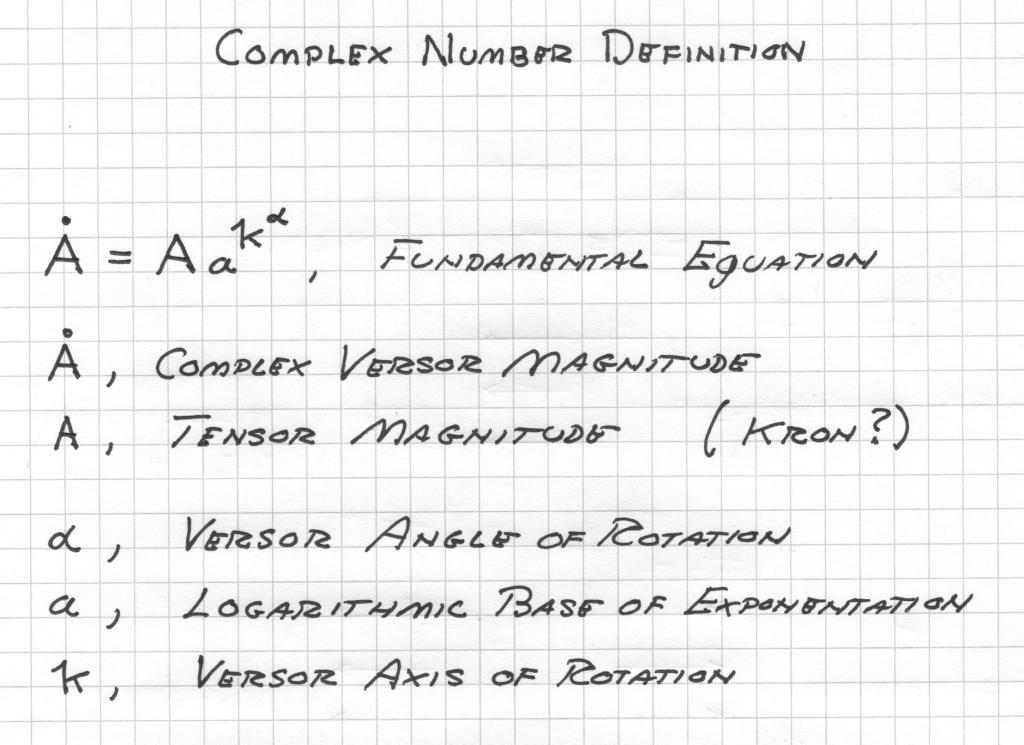 COMPLEX NUMBER DEFINITION
Ȧ = A a^k^α , FUNDAMENTAL EQUATION
Ȧ , COMPLEX VERSOR MAGNITUDE
A , TENSOR MAGNITUDE (KRON?)
α , VERSOR ANGLE OF ROTATION
a , LOGARITHMIC BASE OF EXPONENTATION
k , VERSOR AXIS OF ROTATION